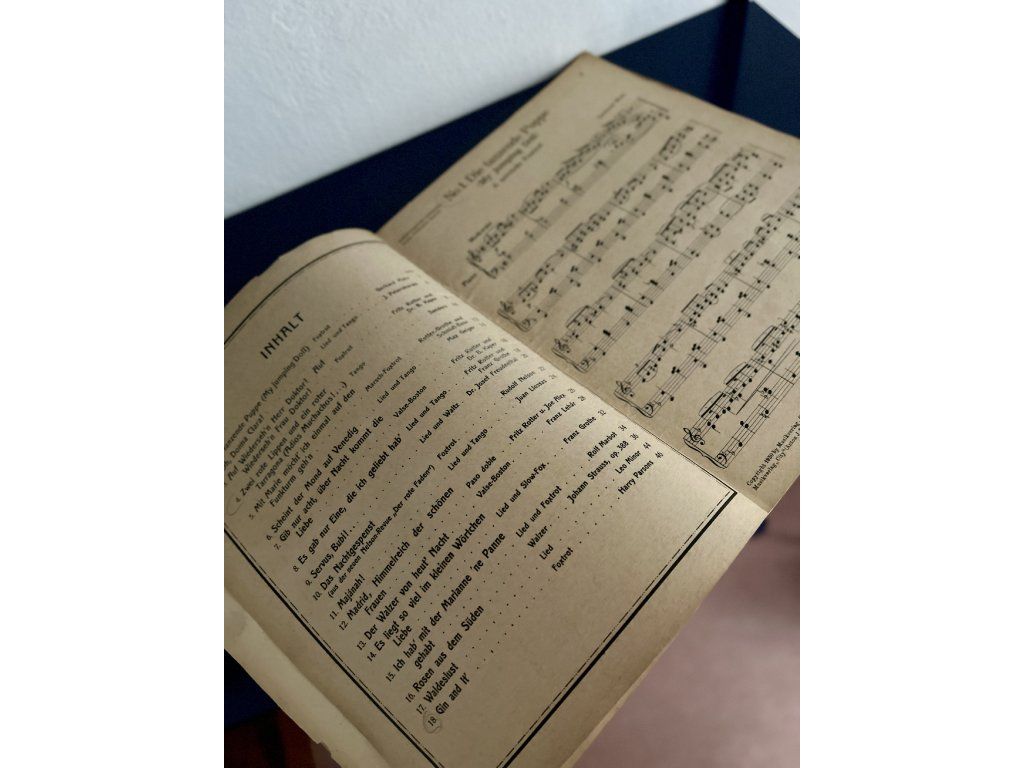 INHALT
tanzende Puppe (My jumping Doll) Foxtrot
Oh, Donna Clara! Lied und Tango J. Petersburski
Auf Wiederseh'n Herr Doktor!
Wiederseh'n Frau Doktor! Foxtrot Fritz Rotter und
Dr. B. Kaper
Zwei rote Lippen und ein roter
Tarragona (Adios Muchachos! . .) Tango Sanders
5. Mit Marie möcht' ich einmal auf den
Funkturm geh'n Marsch-Foxtrot
Max Geiger
6. Scheint der Mond auf Venedig Lied und Tango Fritz Rotter und
Dr. B. Kaper
7. Gib nur acht, über Nacht kommt die
Liebe Valse-Boston Fritz Rotter und
Franz Grothe 18
8. Es gab nur Eine, die ich geliebt hab' Lied und Tango Dr. Josef Freudenthal
9. Servus, Bubi! . . Lied und Waltz Rudolf Nelson 22
10. Das Nachtgespenst
(aus der neuen Nelson-Revue „Der rote Faden") Foxtrot Juan Llossas
11. Majánah! Lied und Tango Fritz Rotter u. Jon Plex
12. Madrid, Himmelreich der schönen
Frauen Paso doble Franz Lehár 28
13. Der Walzer von heut' Nacht Valse-Boston Franz Grothe 32
14. Es liegt so viel im kleinen Wörtchen
Liebe Lied und Slow-Fox Rolf Marbot 34
15. Ich hab' mit der Marianne 'ne Panne
gehabt Lied und Foxtrot Johann Strauss, op. 388 36
16. Rosen aus dem Süden Walzer Leo Minor 44
17. Waldeslust Lied Harry Parsons 46
18. Gin and It' Foxtrot
No. 1. Die tanzende Puppe
My jumping Doll
Moderato
Piano
Copyright 1930 by Musikverlag